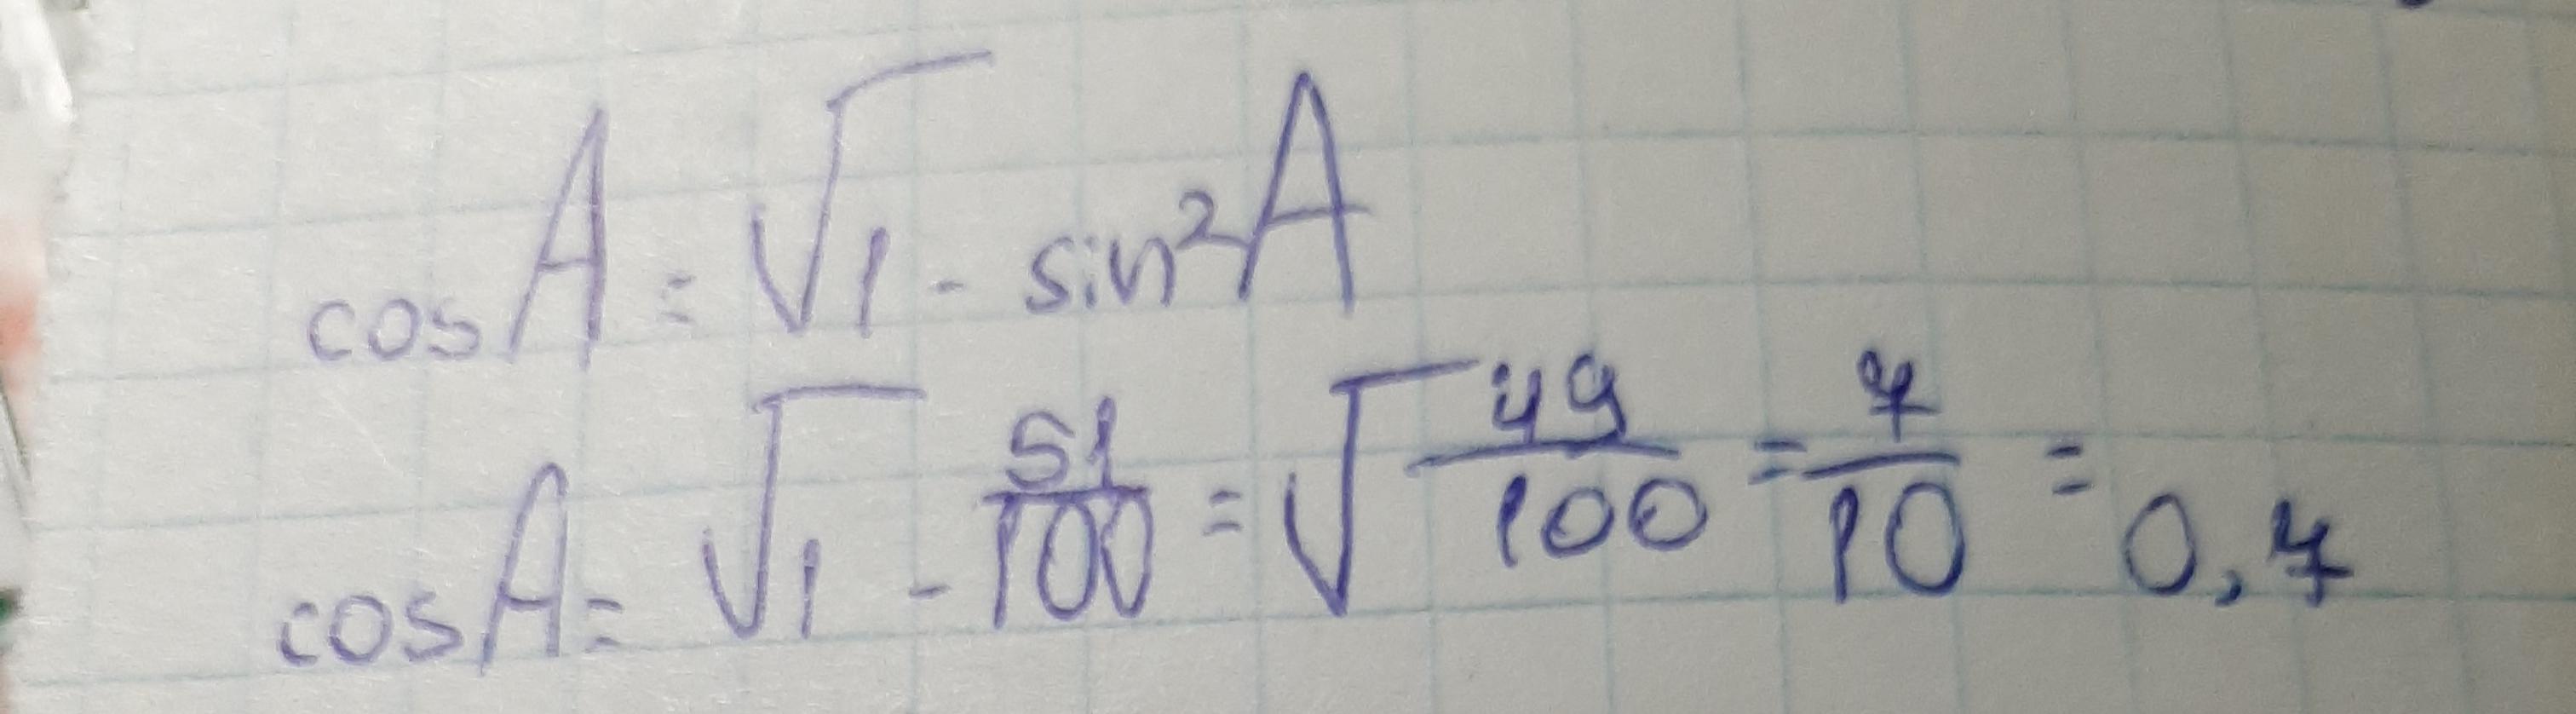 cos A = √1 - sin²A
cos A = √1 - 51/100 = √49/100 = 7/10 = 0,7